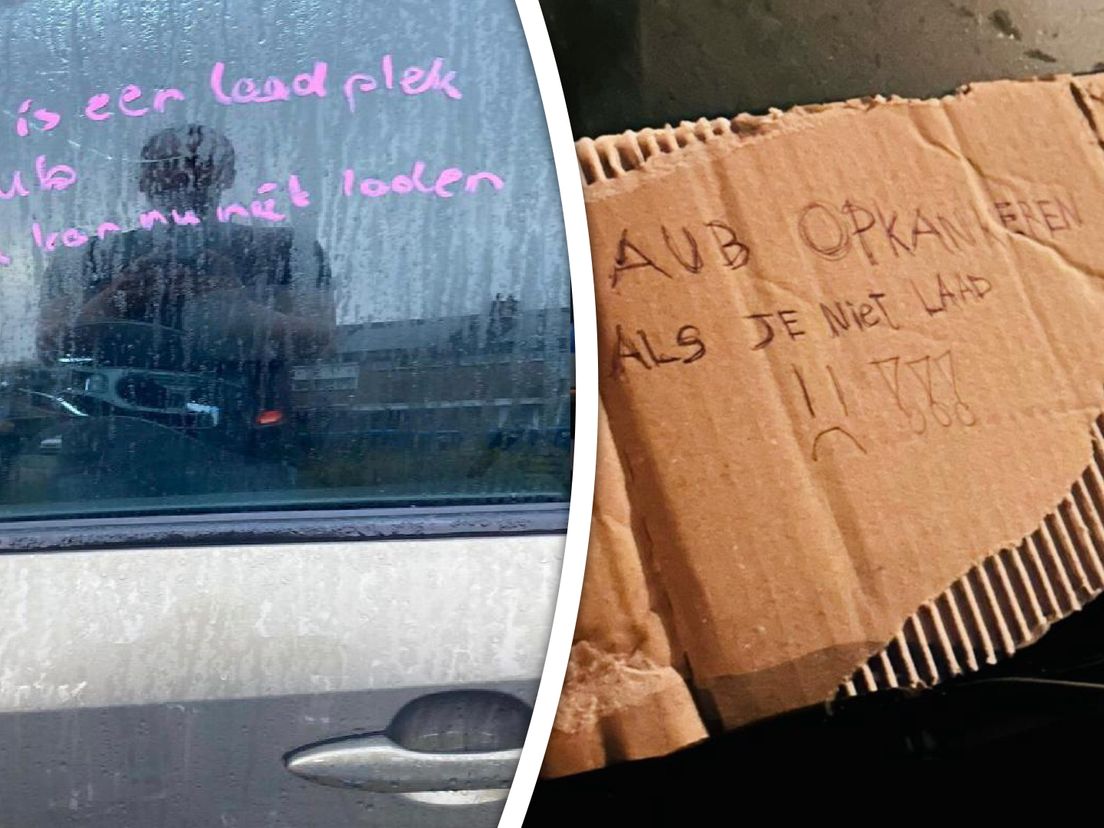 is een laadplek
ub
kan nu niet laden
AUB OPKANKEREN
ALS JE NIET LAAD
!! !!!